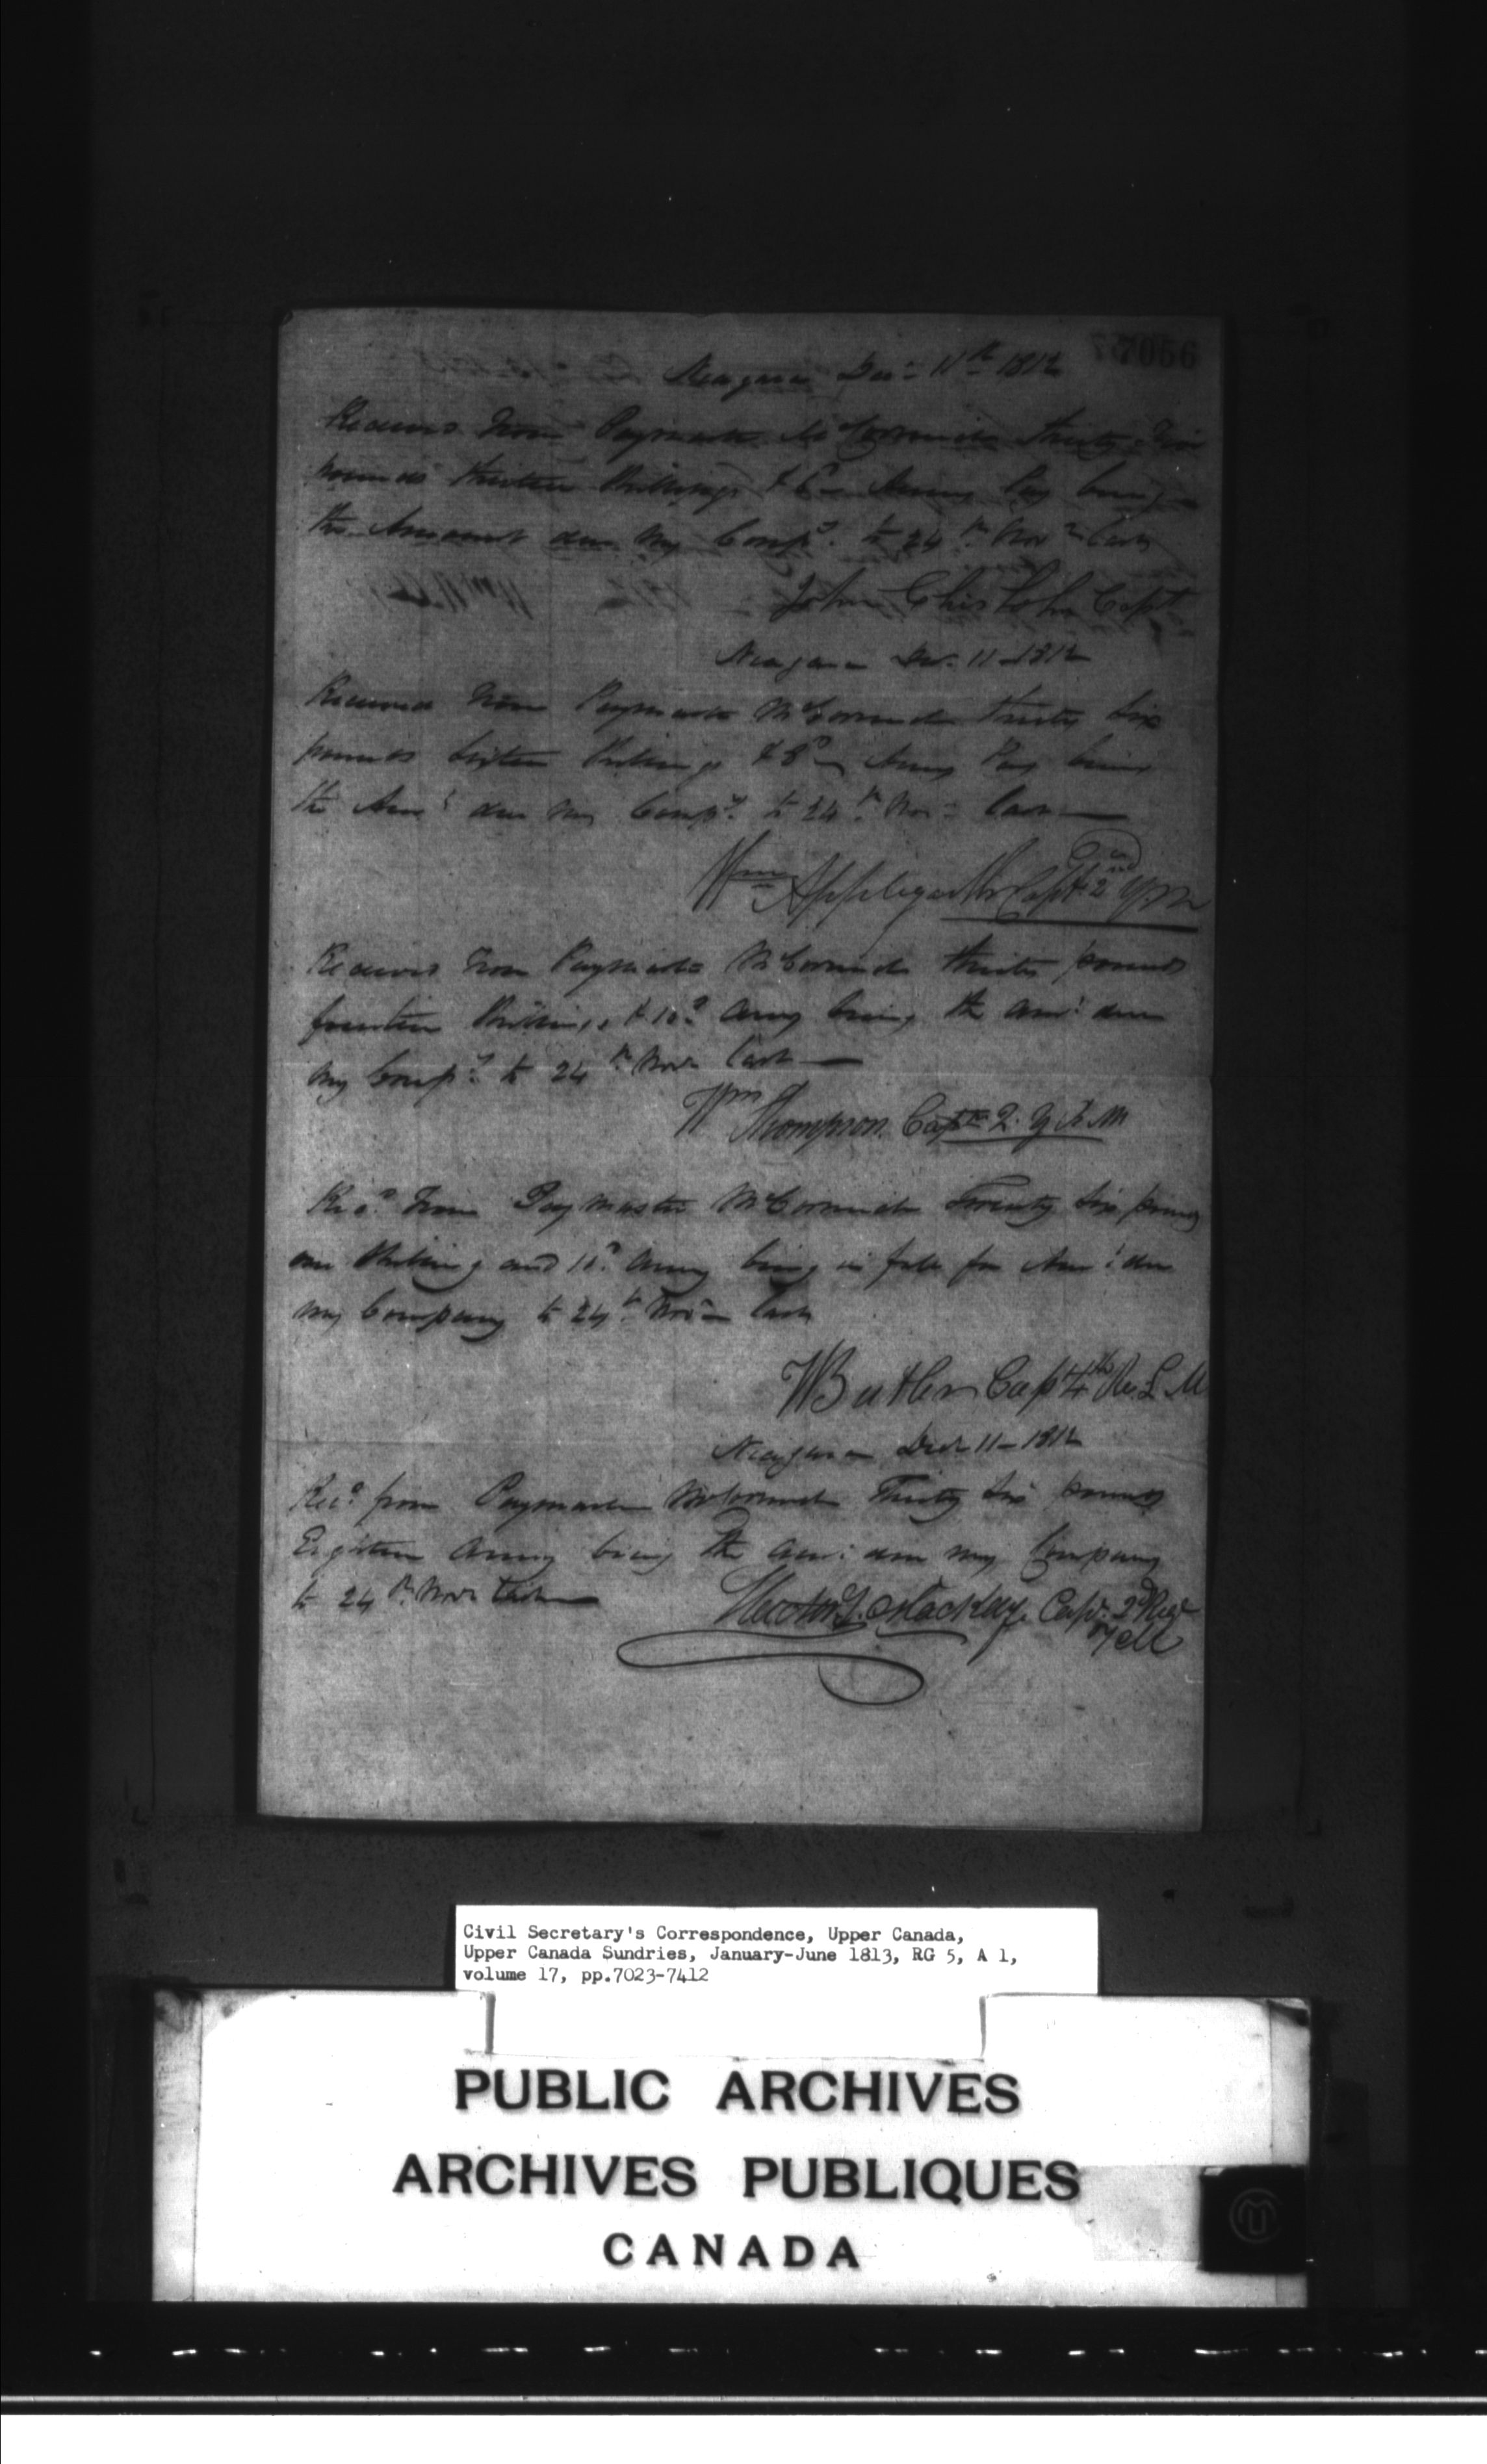 Niagara Decr 11th 1812
Received from Paymaster McCormick Thirty
pounds thirteen Shillings & 6 Army Pay being
the Amount due my Compy. to 24th Novr last
John Chisholm Capt
Niagara Decr. 11 - 1812
Received from Paymaster McCormick Thirty Six
pounds Sixteen Shillings & 8d Army Pay being
the Amt due my Compy. to 24th Novr last
Wm Applegarth Capt 2nd Y.M
Received from Paymaster McCormick thirty pounds
fourteen Shillings & 10d Army being the amt due
my Compy. to 24th Novr last
Wm Thompson Captn 2. Y. R M
Recd from Paymaster McCormick Twenty Six pounds
one Shilling and 11d Army being in full for Amt due
my Company to 24th Novr last
WButler Capt 4th Re. L M
Niagara Decr 11 - 1812
Recd from Paymaster McCormick Thirty Six pounds
Eighteen Army being the amt due my Company
to 24th Novr last
Hector S. MacKay Capt. 2d Regt
Y M
Civil Secretary's Correspondence, Upper Canada,
Upper Canada Sundries, January-June 1813, RG 5, A 1,
volume 17, pp.7023-7412
PUBLIC ARCHIVES
ARCHIVES PUBLIQUES
CANADA